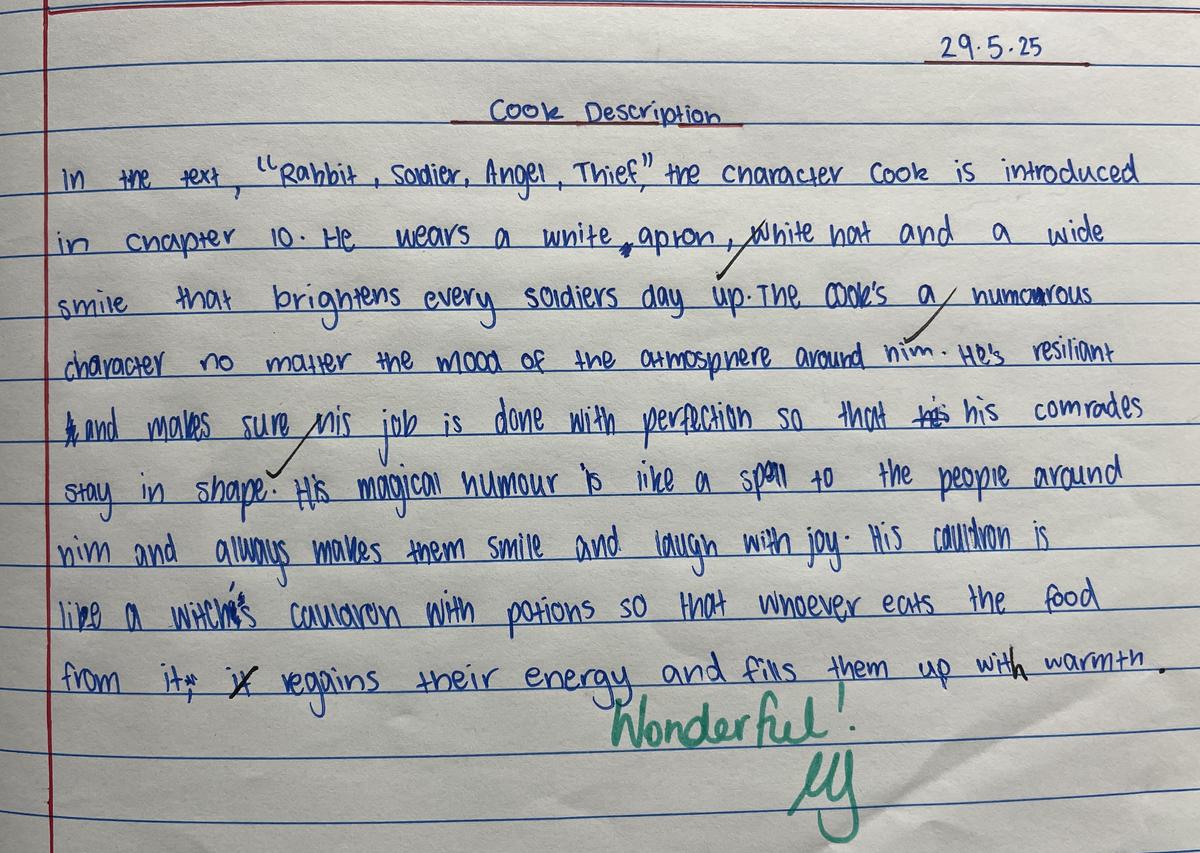 29.5.25
Cook Description
In the text, "Rabbit, Soldier, Angel, Thief," the character Cook is introduced
in chapter 10. He wears a white apron, white hat and a wide
smile that brightens every soldiers day up. The Cook's a humourous
character no matter the mood of the atmosphere around him. He's resiliant
and makes sure his job is done with perfection so that his his comrades
stay in shape. His magical humour is like a spell to the people around
him and always makes them smile and laugh with joy. His cauldron is
like a witch's cauldron with potions so that whoever eats the food
from it, it regains their energy and fills them up with warmth.
Wonderful!